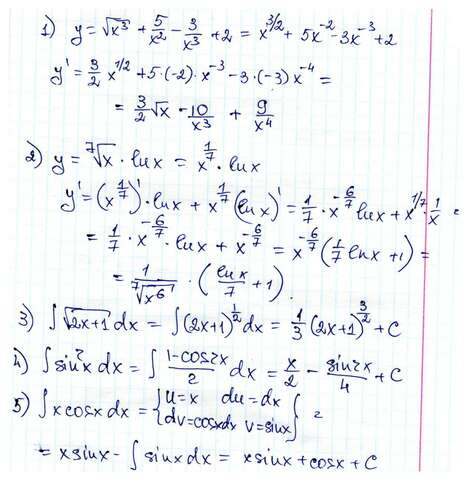 1) y = √x³ + 5/x² - 3/x³ + 2 = x^(3/2) + 5x^(-2) - 3x^(-3) + 2
y' = 3/2 x^(1/2) + 5·(-2)·x^(-3) - 3·(-3)x^(-4) =
= 3/2 √x - 10/x³ + 9/x⁴
2) y = ⁷√x · lnx = x^(1/7) · lnx
y' = (x^(1/7))' · lnx + x^(1/7) (lnx)' = 1/7 · x^(-6/7) lnx + x^(1/7) · 1/x =
= 1/7 · x^(-6/7) · lnx + x^(-6/7) = x^(-6/7) (1/7 lnx + 1) =
= 1/⁷√x⁶ · (lnx/7 + 1).
3) ∫√2x+1 dx = ∫(2x+1)^(1/2) dx = 1/3 (2x+1)^(3/2) + C
4) ∫sin²x dx = ∫ (1-cos2x)/2 dx = x/2 - sin2x/4 + C
5) ∫x cosx dx = {u=x du=dx
dv=cosxdx v=sinx} =
= x sinx - ∫ sinx dx = x sinx + cosx + C